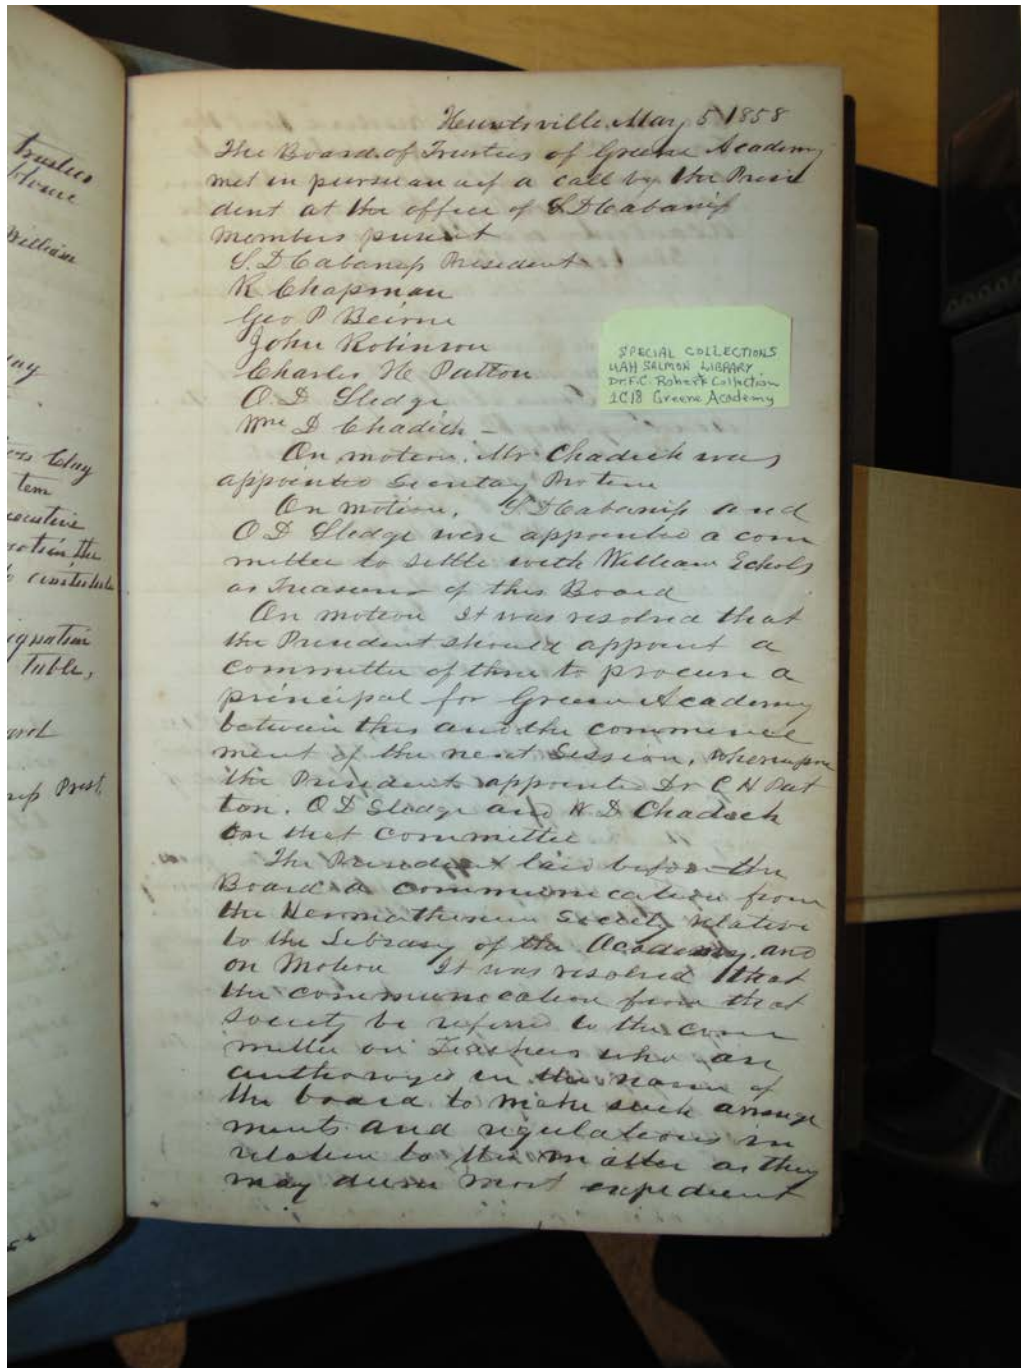 trustees
William
ay
Clay
tem
ecutive
ignation
Table,
Prest.
Huntsville May 5 1858
The Board of Trustees of Greene Academy
met in pursuance of a call by the Presi
dent at the office of S D Cabaniss
members present
S. D Cabaniss President
R Chapman
Geo P Beirne
John Robinson
Charles H Patton
O. D Sledge
Wm D Chadick -
On motion, Mr Chadick was
appointed Secretary Protem
On motion, S D Cabaniss and
O D Sledge were appointed a com
mittee to settle with William Echols
as Treasurer of this Board
On motion It was resolved that
the President should appoint a
committee of three to procure a
principal for Greene Academy
between this and the commence
ment of the next Session, whereupon
the President appointed Dr C H Pat
ton, O D Sledge and W D Chadick
on that committee
The President laid before the
Board a communication from
the Hermathenian Society relative
to the Library of the Academy, and
on Motion It was resolved that
the communication from that
Society be referred to the com
mittee on Teachers who are
authorized in the name of
the board to make such arrange
ments and regulations in
relation to the matter as they
may deem most expedient
SPECIAL COLLECTIONS
UAH SALMON LIBRARY
Dr. F.C. Roberts Collection
2C18 Greene Academy